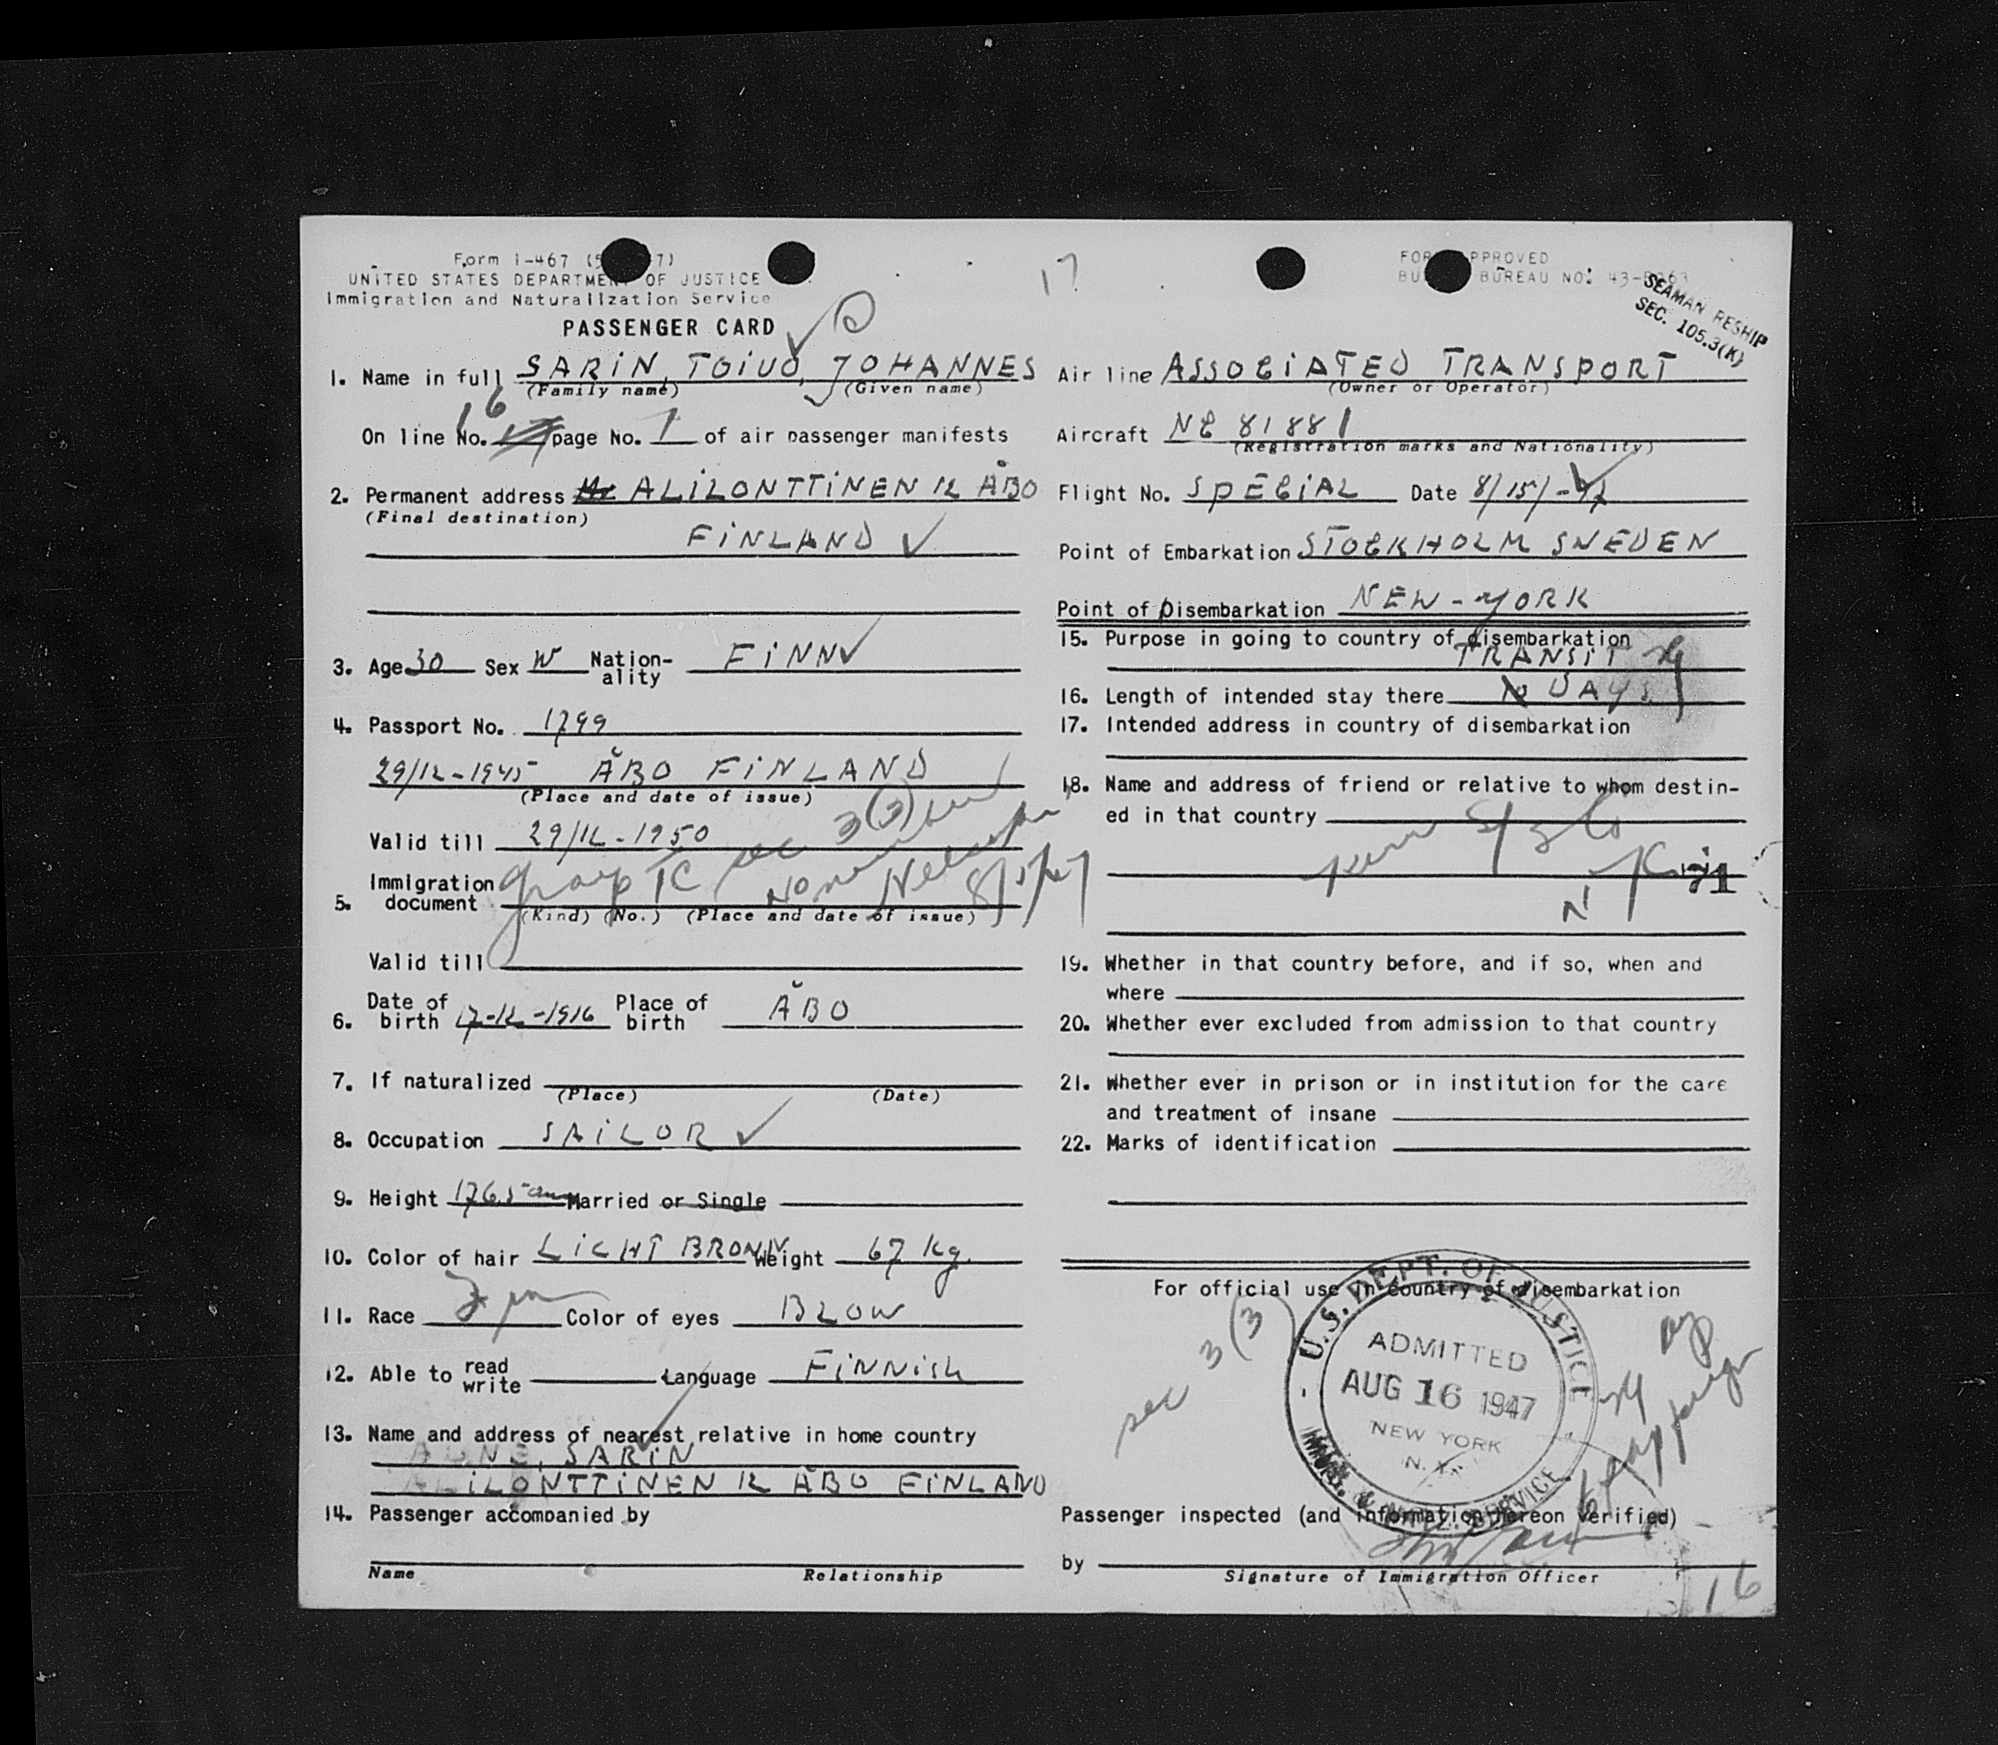 Form I-467 (5 7)
UNITED STATES DEPARTMENT OF JUSTICE
Immigration and Naturalization Service
PASSENGER CARD
17
FORM APPROVED
BUREAU NO. 43-R263
SEAMAN RESHIP
SEC. 105.3(K)
1. Name in full SARIN, TOIVO, JOHANNES
(Family name) (Given name)
16
On line No. 17 page No. 1 of air passenger manifests
2. Permanent address ALILONTTINEN 12 ÅBO
(Final destination)
FINLAND
3. Age 30 Sex M Nation-ality FINN
4. Passport No. 1799
29/12-1945 ÅBO FINLAND
(Place and date of issue)
Valid till 29/12-1950
group TC sec 3(3)
5. Immigration document
(Kind) (No.) (Place and date of issue)
8/15/47
Valid till
6. Date of birth 17-12-1916 Place of birth ÅBO
7. If naturalized
(Place) (Date)
8. Occupation SAILOR
9. Height 176,5 cm Married or Single
10. Color of hair LIGHT BROWN Weight 67 kg.
11. Race Color of eyes BLOW
12. Able to read write Language FINNISH
13. Name and address of nearest relative in home country
SARIN
ALILONTTINEN 12 ÅBO FINLAND
14. Passenger accompanied by
Name Relationship
Air line ASSOCIATED TRANSPORT
(Owner or Operator)
Aircraft NC 81881
(Registration marks and Nationality)
Flight No. SPECIAL Date 8/15/-47
Point of Embarkation STOCKHOLM SWEDEN
Point of Disembarkation NEW-YORK
15. Purpose in going to country of disembarkation
TRANSIT
16. Length of intended stay there DAYS
17. Intended address in country of disembarkation
18. Name and address of friend or relative to whom destin-
ed in that country
N Y C
71
19. Whether in that country before, and if so, when and
where
20. Whether ever excluded from admission to that country
21. Whether ever in prison or in institution for the care
and treatment of insane
22. Marks of identification
For official use in country of disembarkation
sec 3(3)
U.S. DEPT. OF JUSTICE
ADMITTED
AUG 16 1947
NEW YORK
N.Y.
IMMIG. & NATZ. SERVICE
Passenger inspected (and information hereon verified)
by
Signature of Immigration Officer
16